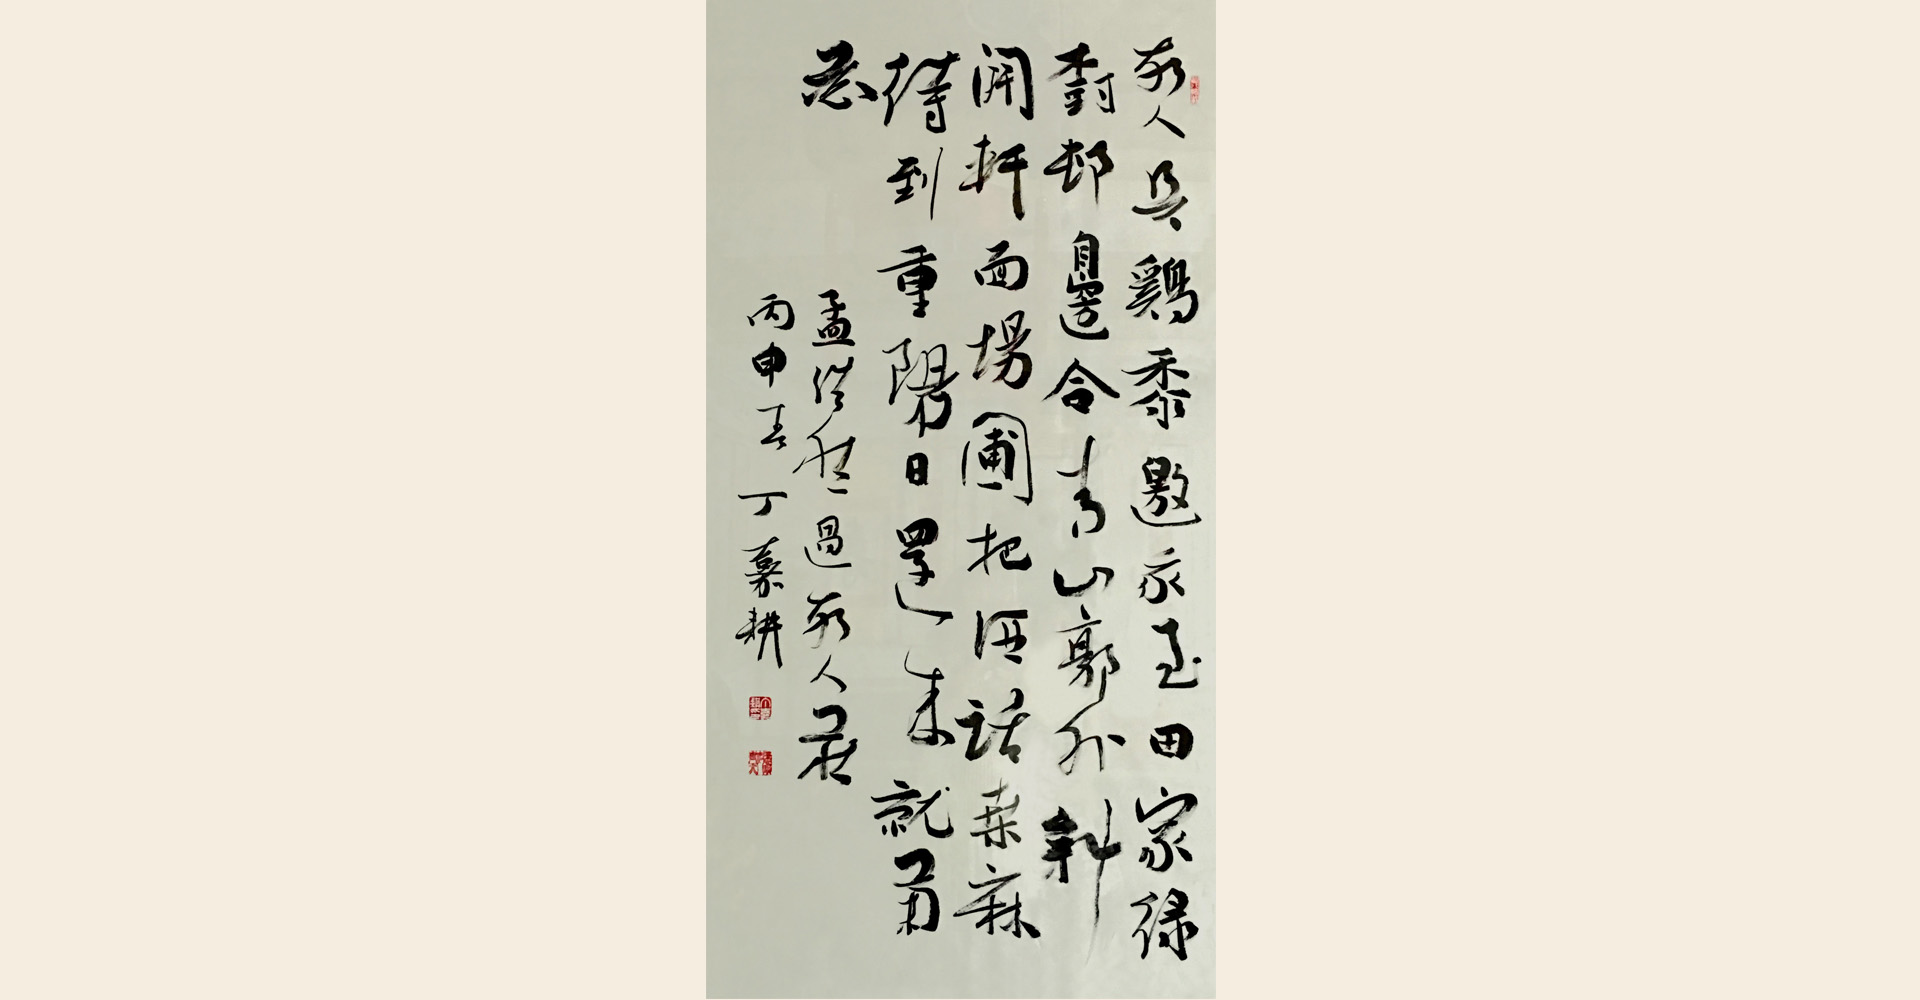 故人具鷄黍邀我至田家緑
樹邨邊合青山郭外斜
開軒面場圃把酒話桑麻
待到重陽日還来就菊
花
孟浩然過故人莊
丙申春丁嘉耕